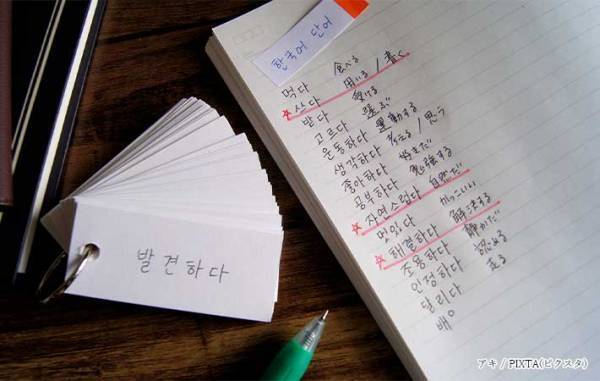 한국어 단어
먹다 食べる
☆쓰다 用いる / 書く
받다 受ける
고르다 選ぶ
운동하다 運動する
생각하다 考える / 思う
좋아하다 好きだ
공부하다 勉強する
☆자연스럽다 自然だ
멋있다 かっこいい
☆해결하다 解決する
조용하다 静かだ
인정하다 認める
달리다 走る
배우
발견하다
アキ / PIXTA(ピクスタ)